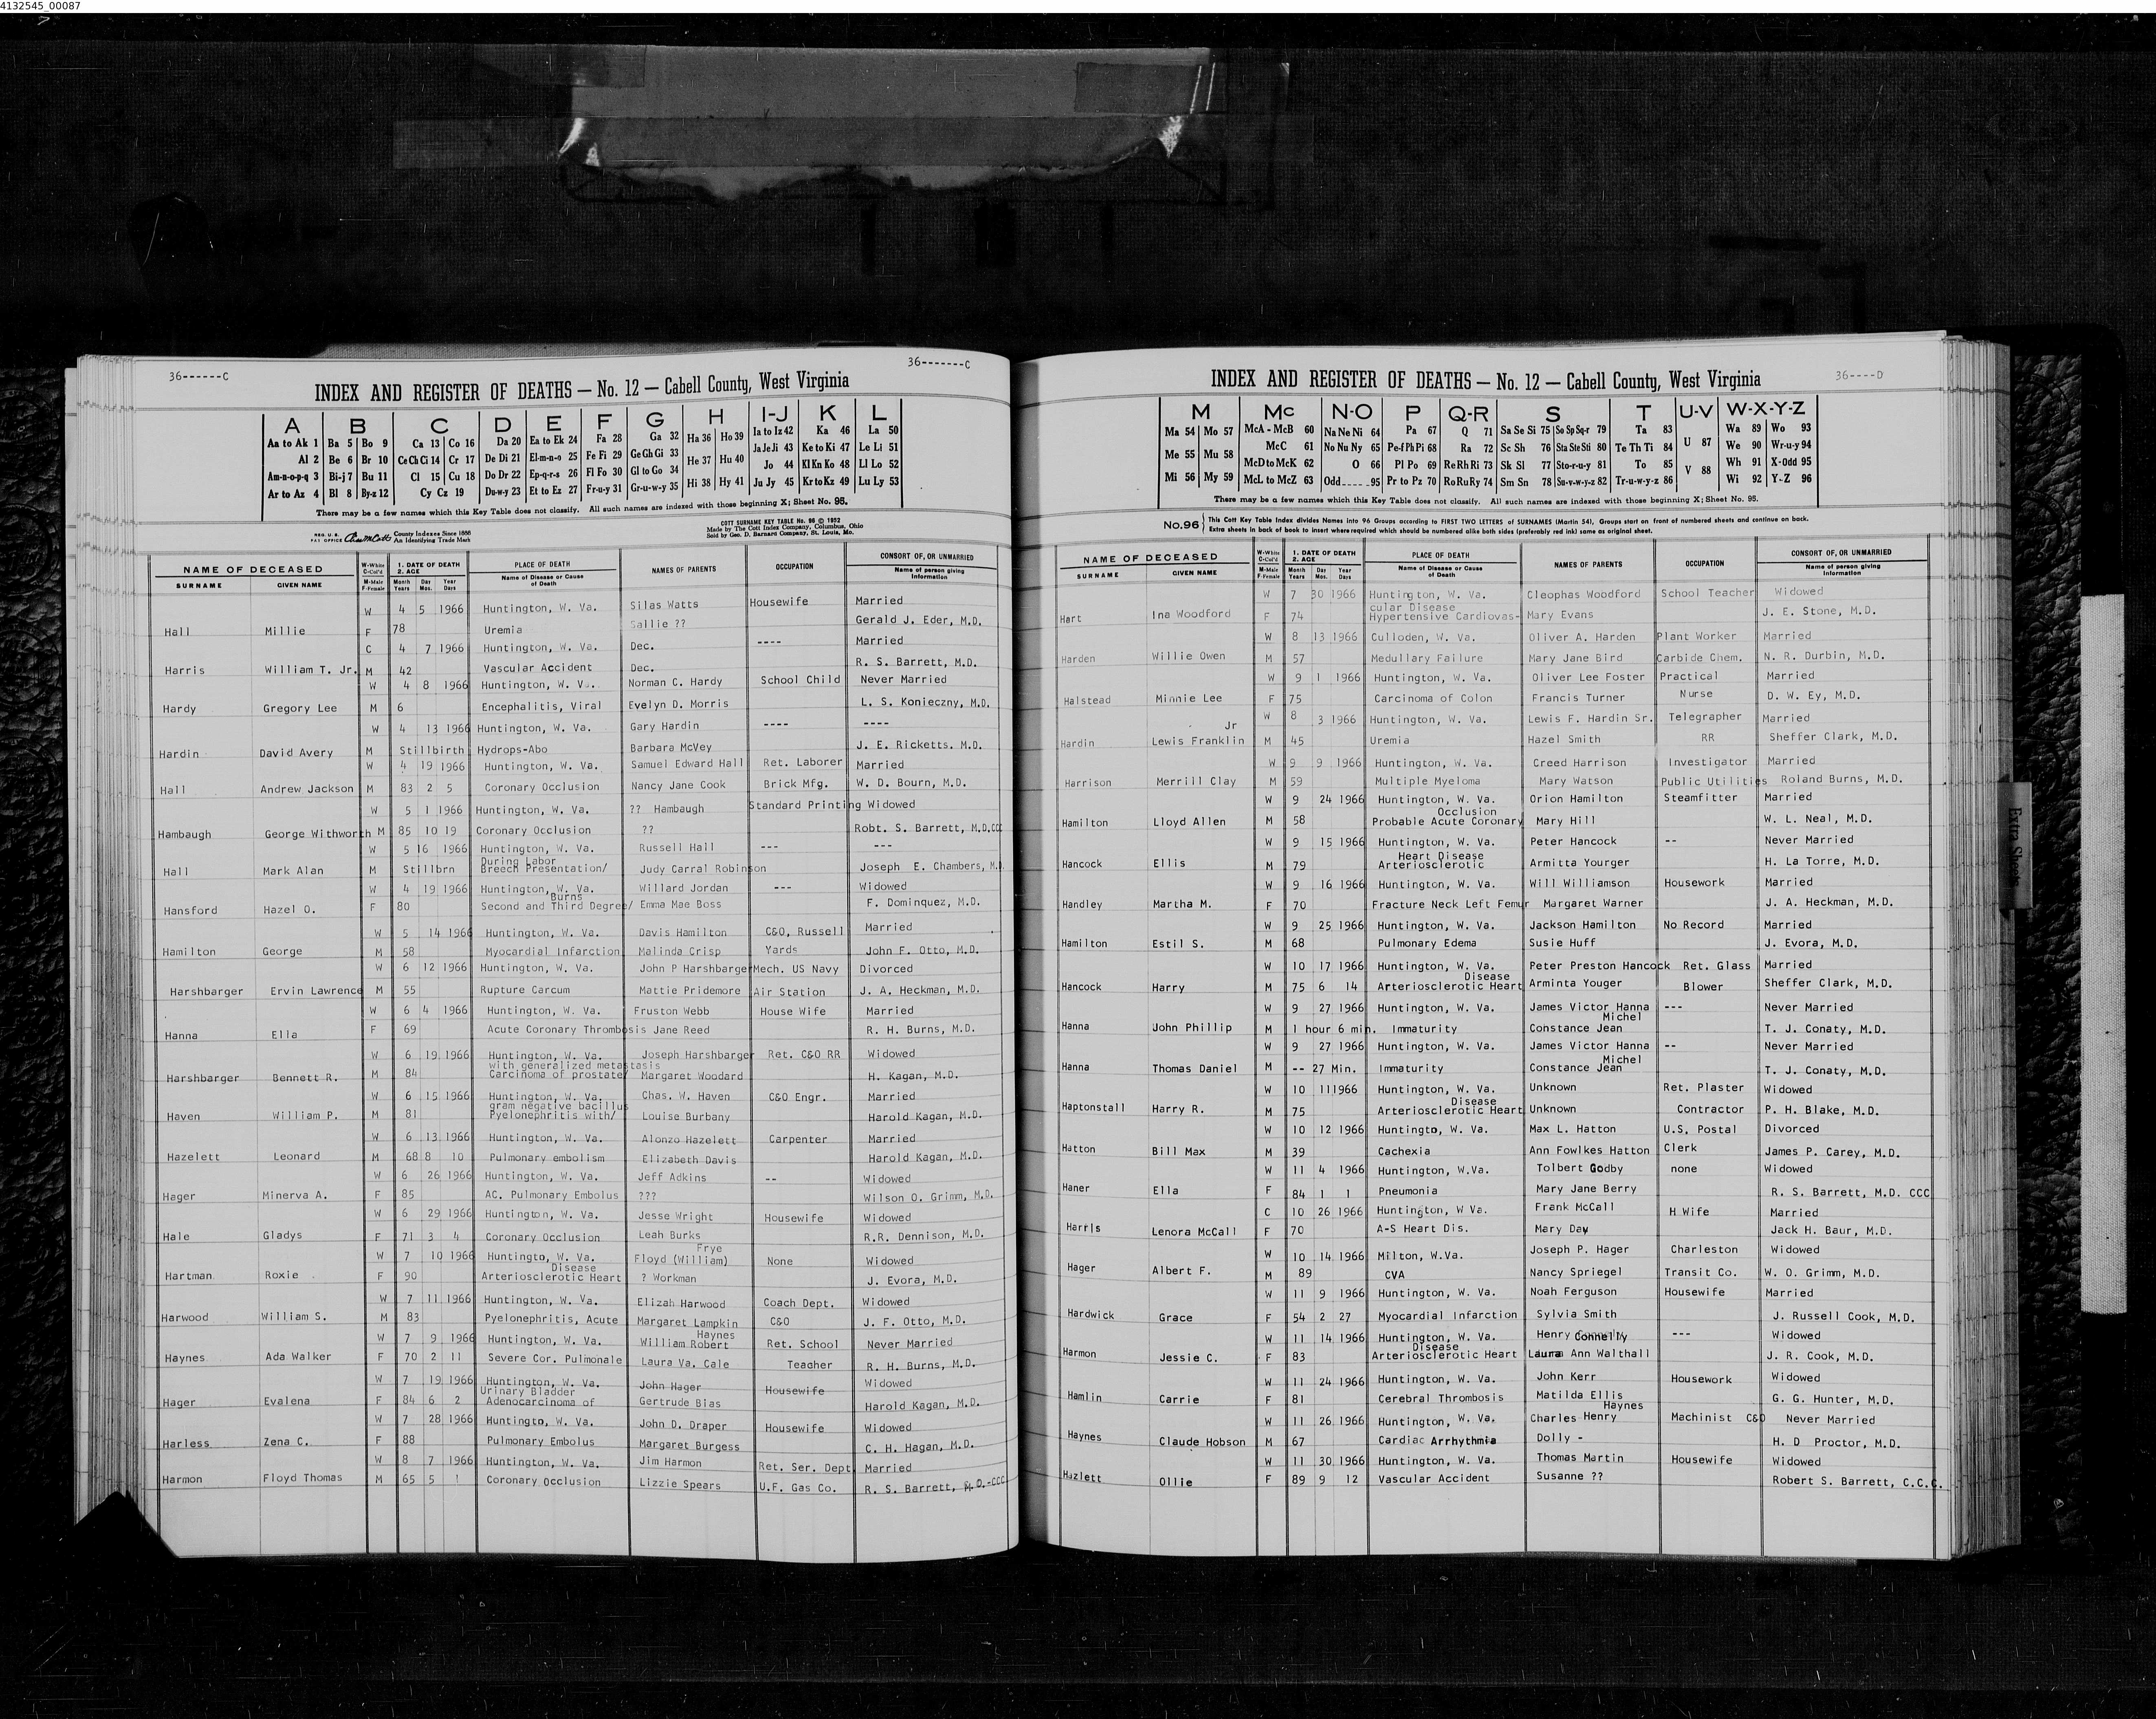 4132545_00087
36------C
36-------C
INDEX AND REGISTER OF DEATHS — No. 12 — Cabell County, West Virginia
A B C D E F G H I-J K L
Aa to Ak 1 Ba 5 Bo 9 Ca 13 Co 16 Da 20 Ea to Ek 24 Fa 28 Ga 32 Ha 36 Ho 39 Ia to Iz 42 Ka 46 La 50
Al 2 Be 6 Br 10 Ce Ch Ci 14 Cr 17 De Di 21 El-m-n-o 25 Fe Fi 29 Ge Gh Gi 33 He 37 Hu 40 Ja Je Ji 43 Ke to Ki 47 Le Li 51
Am-n-o-p-q 3 Bi-j 7 Bu 11 Cl 15 Cu 18 Do Dr 22 Ep-q-r-s 26 Fl Fo 30 Gl to Go 34 Hi 38 Hy 41 Jo 44 Kl Kn Ko 48 Ll Lo 52
Ar to Az 4 Bl 8 By-z 12 Cy Cz 19 Du-w-y 23 Et to Ez 27 Fr-u-y 31 Gr-u-w-y 35 Ju Jy 45 Kr to Kz 49 Lu Ly 53
There may be a few names which this Key Table does not classify. All such names are indexed with those beginning X; Sheet No. 95.
REG. U.S. PAT. OFFICE County Indexes Since 1888 An Identifying Trade Mark
COTT SURNAME KEY TABLE No. 96 © 1952
Made by The Cott Index Company, Columbus, Ohio
Sold by Geo. D. Barnard Company, St. Louis, Mo.
NAME OF DECEASED SURNAME GIVEN NAME W-White C-Col'd M-Male F-Female 1. DATE OF DEATH 2. AGE Month Day Year Years Mos. Days PLACE OF DEATH Name of Disease or Cause of Death NAMES OF PARENTS OCCUPATION CONSORT OF, OR UNMARRIED Name of person giving Information
W 4 5 1966 Huntington, W. Va. Silas Watts Housewife Married
Hall Millie F 78 Uremia Sallie ?? Gerald J. Eder, M.D.
C 4 7 1966 Huntington, W. Va. Dec. ---- Married
Harris William T. Jr. M 42 Vascular Accident Dec. R. S. Barrett, M.D.
W 4 8 1966 Huntington, W. Va. Norman C. Hardy School Child Never Married
Hardy Gregory Lee M 6 Encephalitis, Viral Evelyn D. Morris L. S. Konieczny, M.D.
W 4 13 1966 Huntington, W. Va. Gary Hardin ---- ----
Hardin David Avery M Stillbirth Hydrops-Abo Barbara McVey J. E. Ricketts. M.D.
W 4 19 1966 Huntington, W. Va. Samuel Edward Hall Ret. Laborer Married
Hall Andrew Jackson M 83 2 5 Coronary Occlusion Nancy Jane Cook Brick Mfg. W. D. Bourn, M.D.
W 5 1 1966 Huntington, W. Va. ?? Hambaugh Standard Printing Widowed
Hambaugh George Withworth M 85 10 19 Coronary Occlusion ?? Robt. S. Barrett, M.D.CCC
W 5 16 1966 Huntington, W. Va. Russell Hall --- ---
During Labor
Hall Mark Alan M Stillbrn Breech Presentation/ Judy Carral Robinson Joseph E. Chambers, M.D.
W 4 19 1966 Huntington, W. Va. Willard Jordan --- Widowed
Burns
Hansford Hazel O. F 80 Second and Third Degree/ Emma Mae Boss F. Dominquez, M.D.
W 5 14 1966 Huntington, W. Va. Davis Hamilton C&O, Russell Married
Hamilton George M 58 Myocardial Infarction Malinda Crisp Yards John F. Otto, M.D.
W 6 12 1966 Huntington, W. Va. John P Harshbarger Mech. US Navy Divorced
Harshbarger Ervin Lawrence M 55 Rupture Carcum Mattie Pridemore Air Station J. A. Heckman, M.D.
W 6 4 1966 Huntington, W. Va. Fruston Webb House Wife Married
Hanna Ella F 69 Acute Coronary Thrombosis Jane Reed R. H. Burns, M.D.
W 6 19 1966 Huntington, W. Va. Joseph Harshbarger Ret. C&O RR Widowed
with generalized metastasis
Harshbarger Bennett R. M 84 Carcinoma of prostate/ Margaret Woodard H. Kagan, M.D.
W 6 15 1966 Huntington, W. Va. Chas. W. Haven C&O Engr. Married
gram negative bacillus
Haven William P. M 81 Pyelonephritis with/ Louise Burbany Harold Kagan, M.D.
W 6 13 1966 Huntington, W. Va. Alonzo Hazelett Carpenter Married
Hazelett Leonard M 68 8 10 Pulmonary embolism Elizabeth Davis Harold Kagan, M.D.
W 6 26 1966 Huntington, W. Va. Jeff Adkins -- Widowed
Hager Minerva A. F 85 AC. Pulmonary Embolus ??? Wilson O. Grimm, M.D.
W 6 29 1966 Huntington, W. Va. Jesse Wright Housewife Widowed
Hale Gladys F 71 3 4 Coronary Occlusion Leah Burks R.R. Dennison, M.D.
Frye
W 7 10 1966 Huntingto, W. Va. Floyd (William) None Widowed
Disease
Hartman Roxie F 90 Arteriosclerotic Heart ? Workman J. Evora, M.D.
W 7 11 1966 Huntington, W. Va. Elizah Harwood Coach Dept. Widowed
Harwood William S. M 83 Pyelonephritis, Acute Margaret Lampkin C&O J. F. Otto, M.D.
Haynes
W 7 9 1966 Huntington, W. Va. William Robert Ret. School Never Married
Haynes Ada Walker F 70 2 11 Severe Cor. Pulmonale Laura Va. Cale Teacher R. H. Burns, M.D.
W 7 19 1966 Huntington, W. Va. John Hager Housewife Widowed
Urinary Bladder
Hager Evalena F 84 6 2 Adenocarcinoma of Gertrude Bias Harold Kagan, M.D.
W 7 28 1966 Huntingto, W. Va. John D. Draper Housewife Widowed
Harless Zena C. F 88 Pulmonary Embolus Margaret Burgess C. H. Hagan, M.D.
W 8 7 1966 Huntington, W. Va. Jim Harmon Ret. Ser. Dept Married
Harmon Floyd Thomas M 65 5 1 Coronary Occlusion Lizzie Spears U.F. Gas Co. R. S. Barrett, M.D.-CCC
36----D
INDEX AND REGISTER OF DEATHS — No. 12 — Cabell County, West Virginia
M Mc N-O P Q-R S T U-V W-X-Y-Z
Ma 54 Mo 57 McA - McB 60 Na Ne Ni 64 Pa 67 Q 71 Sa Se Si 75 So Sp Sq-r 79 Ta 83 U 87 Wa 89 Wo 93
Me 55 Mu 58 McC 61 No Nu Ny 65 Pe-f Ph Pi 68 Ra 72 Sc Sh 76 Sta Ste Sti 80 Te Th Ti 84 We 90 Wr-u-y 94
McD to McK 62 O 66 Pl Po 69 Re Rh Ri 73 Sk Sl 77 Sto-r-u-y 81 To 85 V 88 Wh 91 X-Odd 95
Mi 56 My 59 McL to McZ 63 Odd-----95 Pr to Pz 70 Ro Ru Ry 74 Sm Sn 78 Su-v-w-y-z 82 Tr-u-w-y-z 86 Wi 92 Y-Z 96
There may be a few names which this Key Table does not classify. All such names are indexed with those beginning X; Sheet No. 95.
No.96 This Cott Key Table Index divides Names into 96 Groups according to FIRST TWO LETTERS of SURNAMES (Martin 54), Groups start on front of numbered sheets and continue on back.
Extra sheets in back of book to insert where required which should be numbered alike both sides (preferably red ink) same as original sheet.
NAME OF DECEASED SURNAME GIVEN NAME W-White C-Col'd M-Male F-Female 1. DATE OF DEATH 2. AGE Month Day Year Years Mos. Days PLACE OF DEATH Name of Disease or Cause of Death NAMES OF PARENTS OCCUPATION CONSORT OF, OR UNMARRIED Name of person giving Information
W 7 30 1966 Huntington, W. Va. Cleophas Woodford School Teacher Widowed
cular Disease
Hart Ina Woodford F 74 Hypertensive Cardiovas- Mary Evans J. E. Stone, M.D.
W 8 13 1966 Culloden, W. Va. Oliver A. Harden Plant Worker Married
Harden Willie Owen M 57 Medullary Failure Mary Jane Bird Carbide Chem. N. R. Durbin, M.D.
W 9 1 1966 Huntington, W. Va. Oliver Lee Foster Practical Married
Halstead Minnie Lee F 75 Carcinoma of Colon Francis Turner Nurse D. W. Ey, M.D.
W 8 3 1966 Huntington, W. Va. Lewis F. Hardin Sr. Telegrapher Married
Jr
Hardin Lewis Franklin M 45 Uremia Hazel Smith RR Sheffer Clark, M.D.
W 9 9 1966 Huntington, W. Va. Creed Harrison Investigator Married
Harrison Merrill Clay M 59 Multiple Myeloma Mary Watson Public Utilities Roland Burns, M.D.
W 9 24 1966 Huntington, W. Va. Orion Hamilton Steamfitter Married
Occlusion
Hamilton Lloyd Allen M 58 Probable Acute Coronary Mary Hill W. L. Neal, M.D.
W 9 15 1966 Huntington, W. Va. Peter Hancock -- Never Married
Heart Disease
Hancock Ellis M 79 Arteriosclerotic Armitta Yourger H. La Torre, M.D.
W 9 16 1966 Huntington, W. Va. Will Williamson Housework Married
Handley Martha M. F 70 Fracture Neck Left Femur Margaret Warner J. A. Heckman, M.D.
W 9 25 1966 Huntington, W. Va. Jackson Hamilton No Record Married
Hamilton Estil S. M 68 Pulmonary Edema Susie Huff J. Evora, M.D.
W 10 17 1966 Huntington, W. Va. Peter Preston Hancock Ret. Glass Married
Disease
Hancock Harry M 75 6 14 Arteriosclerotic Heart Arminta Youger Blower Sheffer Clark, M.D.
W 9 27 1966 Huntington, W. Va. James Victor Hanna --- Never Married
Michel
Hanna John Phillip M 1 hour 6 min. Immaturity Constance Jean T. J. Conaty, M.D.
W 9 27 1966 Huntington, W. Va. James Victor Hanna -- Never Married
Michel
Hanna Thomas Daniel M -- 27 Min. Immaturity Constance Jean T. J. Conaty, M.D.
W 10 11 1966 Huntington, W. Va. Unknown Ret. Plaster Widowed
Disease
Haptonstall Harry R. M 75 Arteriosclerotic Heart Unknown Contractor P. H. Blake, M.D.
W 10 12 1966 Huntingto, W. Va. Max L. Hatton U.S. Postal Divorced
Hatton Bill Max M 39 Cachexia Ann Fowlkes Hatton Clerk James P. Carey, M.D.
W 11 4 1966 Huntington, W.Va. Tolbert Godby none Widowed
Haner Ella F 84 1 1 Pneumonia Mary Jane Berry R. S. Barrett, M.D. CCC
C 10 26 1966 Huntington, W Va. Frank McCall H Wife Married
Harris Lenora McCall F 70 A-S Heart Dis. Mary Day Jack H. Baur, M.D.
W 10 14 1966 Milton, W.Va. Joseph P. Hager Charleston Widowed
Hager Albert F. M 89 CVA Nancy Spriegel Transit Co. W. O. Grimm, M.D.
W 11 9 1966 Huntington, W. Va. Noah Ferguson Housewife Married
Hardwick Grace F 54 2 27 Myocardial Infarction Sylvia Smith J. Russell Cook, M.D.
W 11 14 1966 Huntington, W. Va. Henry Connelly --- Widowed
Disease
Harmon Jessie C. F 83 Arteriosclerotic Heart Laura Ann Walthall J. R. Cook, M.D.
W 11 24 1966 Huntington, W. Va. John Kerr Housework Widowed
Hamlin Carrie F 81 Cerebral Thrombosis Matilda Ellis G. G. Hunter, M.D.
Haynes
W 11 26 1966 Huntington, W. Va. Charles Henry Machinist C&O Never Married
Haynes Claude Hobson M 67 Cardiac Arrhythmia Dolly - H. D Proctor, M.D.
W 11 30 1966 Huntington, W. Va. Thomas Martin Housewife Widowed
Hazlett Ollie F 89 9 12 Vascular Accident Susanne ?? Robert S. Barrett, C.C.C.
Extra Sheets